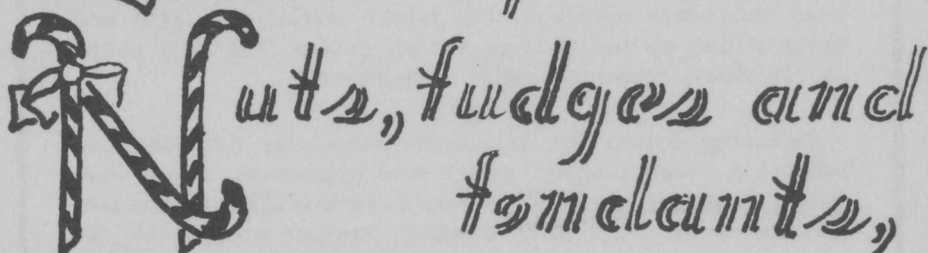 Nuts, fudges and
fondants,